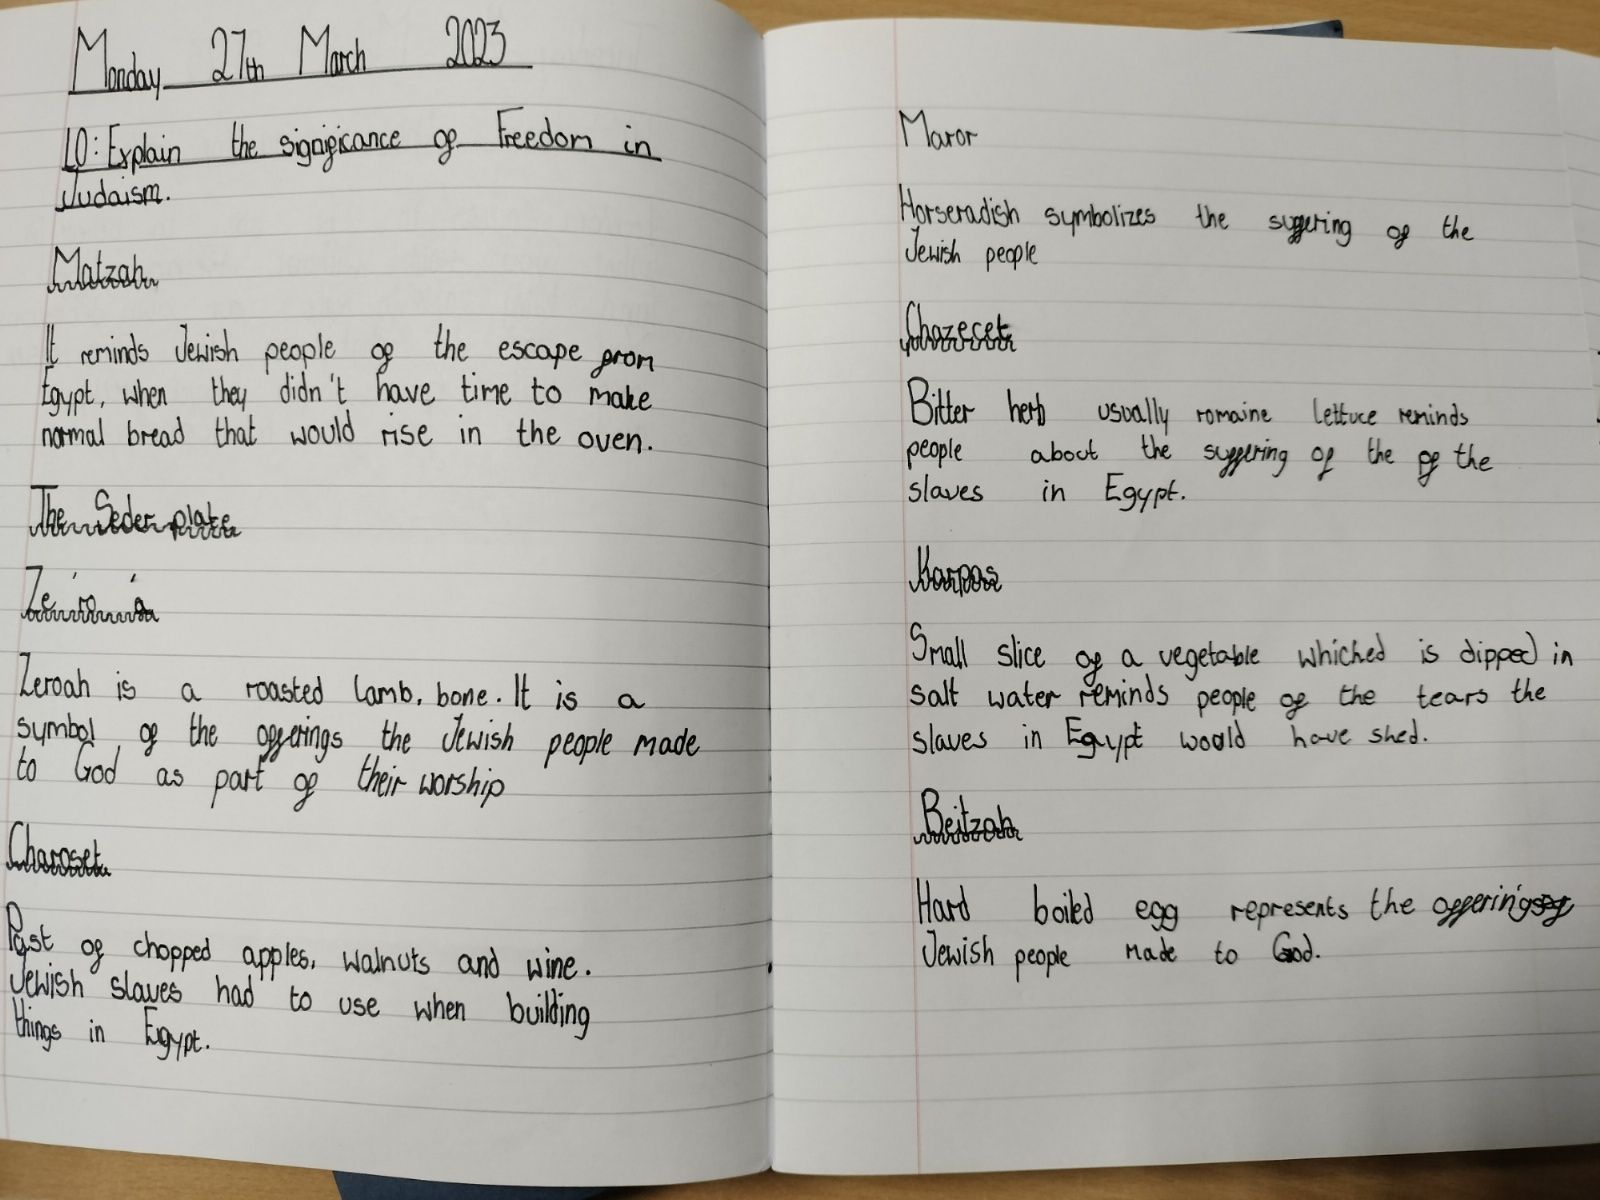 Monday 27th March 2023
LO: Explain the significance of Freedom in
Judaism.
Matzah
It reminds Jewish people of the escape from
Egypt, when they didn't have time to make
normal bread that would rise in the oven.
The Seder plate
Ze'ro'a
Zeroah is a roasted lamb. bone. It is a
symbol of the offerings the Jewish people made
to God as part of their worship
Charoset
Past of chopped apples, walnuts and wine.
Jewish slaves had to use when building
things in Egypt.
Maror
Horseradish symbolizes the suffering of the
Jewish people
Chazeret
Bitter herb usually romaine lettuce reminds
people about the suffering of the of the
slaves in Egypt.
Karpas
Small slice of a vegetable whiched is dipped in
salt water reminds people of the tears the
slaves in Egypt would have shed.
Beitzah
Hard boiled egg represents the offerings
Jewish people made to God.